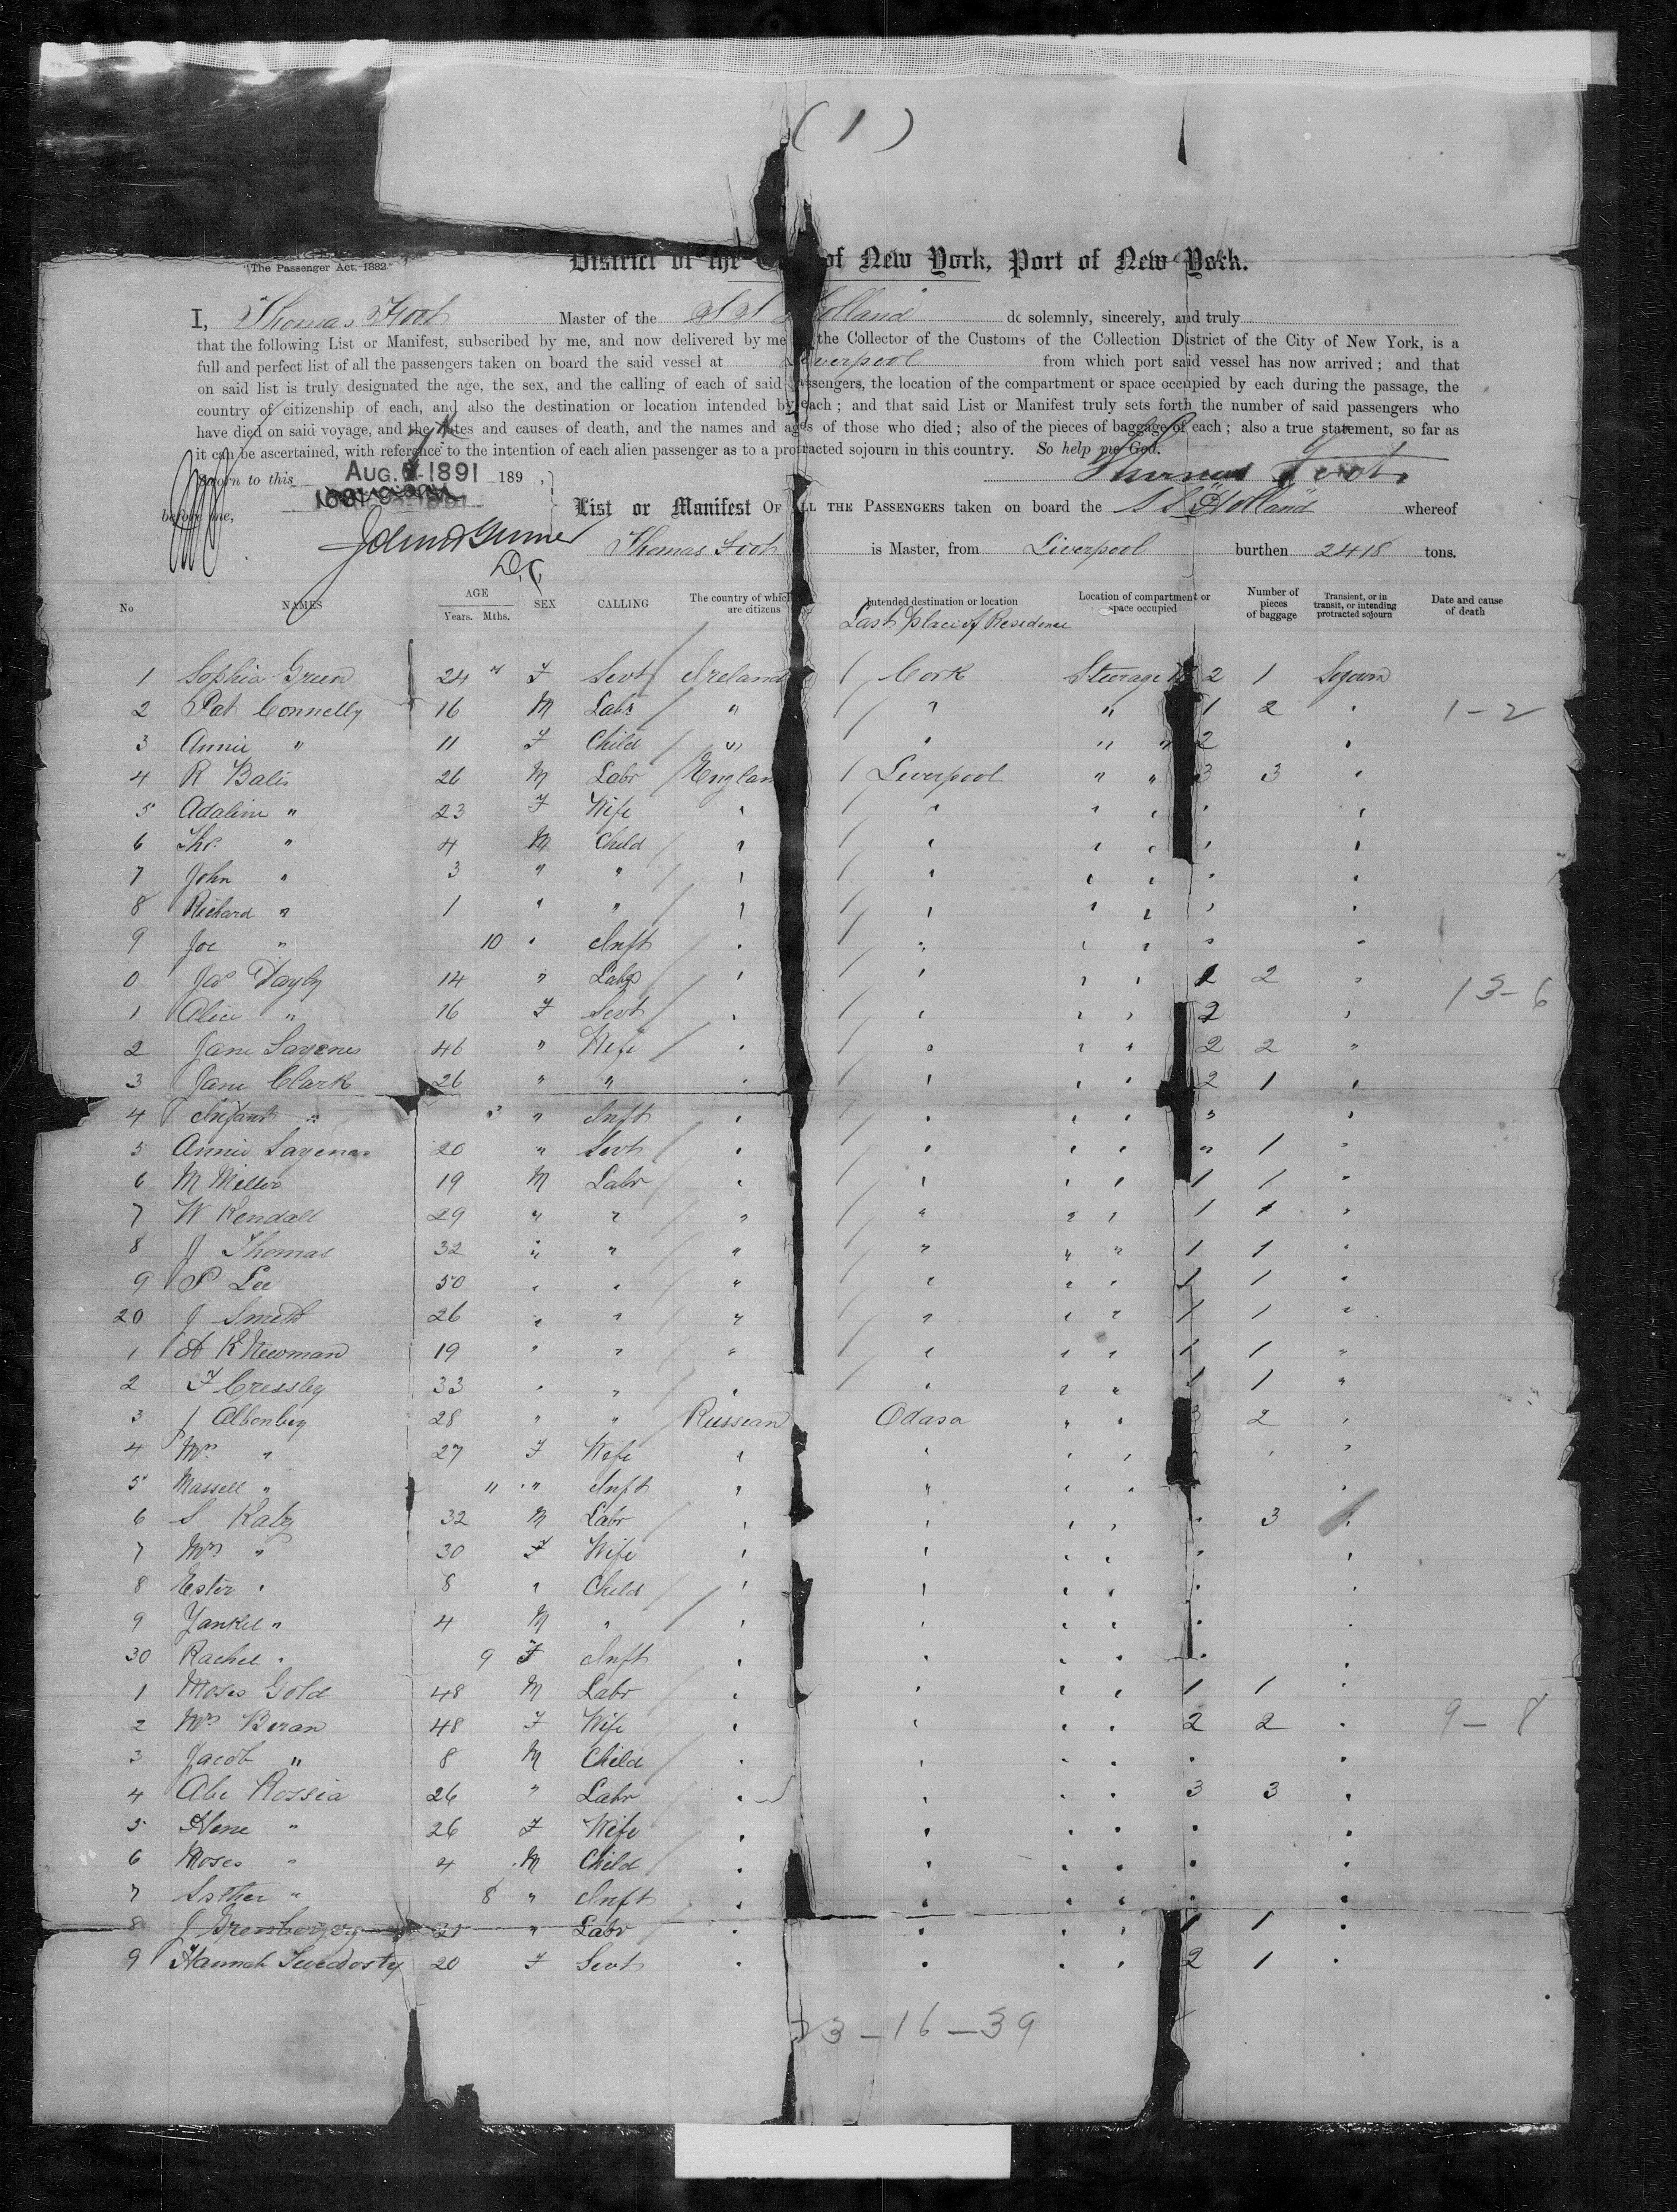 ( 1 )
"The Passenger Act. 1882"
District of the of New York, Port of New York.
I, Thomas Foot Master of the S S Holland do solemnly, sincerely, and truly
that the following List or Manifest, subscribed by me, and now delivered by me the Collector of the Customs of the Collection District of the City of New York, is a
full and perfect list of all the passengers taken on board the said vessel at Liverpool from which port said vessel has now arrived ; and that
on said list is truly designated the age, the sex, and the calling of each of said passengers, the location of the compartment or space occupied by each during the passage, the
country of citizenship of each, and also the destination or location intended by each ; and that said List or Manifest truly sets forth the number of said passengers who
have died on said voyage, and the dates and causes of death, and the names and ages of those who died ; also of the pieces of baggage of each ; also a true statement, so far as
it can be ascertained, with reference to the intention of each alien passenger as to a protracted sojourn in this country. So help me God.
Sworn to this AUG. 1891 189 , Thomas Foot
before me,
List or Manifest OF ALL THE PASSENGERS taken on board the S S "Holland" whereof
Thomas Foot is Master, from Liverpool burthen 2418 tons.
D.C.
No NAMES AGE Years. Mths. SEX CALLING The country of which are citizens Intended destination or location Location of compartment or space occupied Number of pieces of baggage Transient, or in transit, or intending protracted sojourn Date and cause of death
Last place of Residence
1 Sophia Green 24 F Servt Ireland / Cork Steerage 2 1 Sojourn
2 Pat Connelly 16 M Labr " / " " 1 2 " 1-2
3 Annie " 11 F Child " / " " " 2 "
4 R Balis 26 M Labr England / Liverpool " " 3 3 "
5 Adaline " 23 F Wife " / " " " " "
6 Tho. " 4 M Child " / " " " " "
7 John " 3 " " " / " " " " "
8 Richard " 1 " " " / " " " " "
9 Joe " 10 " Inft " / " " " " "
0 Jas Dayly 14 " Labr " / " " " 1 2 " 13-6
1 Alice " 16 F Servt " / " " " 2 "
2 Jane Sayenes 46 " Wife " / " " " 2 2 "
3 Jane Clark 26 " " " / " " " 2 1 "
4 Infant " 3 " Inft " / " " " " "
5 Annie Sayenes 20 " Servt " / " " " " 1 "
6 M Miller 19 M Labr " / " " " 1 1 "
7 W Kendall 29 " " " / " " " 1 1 "
8 J Thomas 32 " " " / " " " 1 1 "
9 P Lee 50 " " " / " " " 1 1 "
20 J Smith 26 " " " / " " " 1 1 "
1 A R Newman 19 " " " / " " " 1 1 "
2 F Cressley 33 " " " / " " " 1 1 "
3 J Albonbey 28 " " Russian Odasa " " 3 2 "
4 Mrs " 27 F Wife " " " " " " "
5 Massell " 11 " Inft " " " " "
6 S Katz 32 M Labr " " " " " 3 "
7 Mrs " 30 F Wife " " " " " "
8 Ester " 8 " Child " " " " " "
9 Yankel " 4 M " " " " " " "
30 Rachel " 9 F Inft " " " " " "
1 Moses Gold 48 M Labr " " " " 1 1 "
2 Mrs Beran 48 F Wife " " " " 2 2 " 9-8
3 Jacob " 8 M Child " " " " " "
4 Abe Rossia 26 " Labr " " " " 3 3 "
5 Hene " 26 F Wife " " " " " "
6 Moses " 4 M Child " " " " " "
7 Esther " 8 " Inft " " " " " "
8 J " Labr " " " " 1 1 "
9 Hannah 20 F Servt " " " " 2 1 "
23-16-39